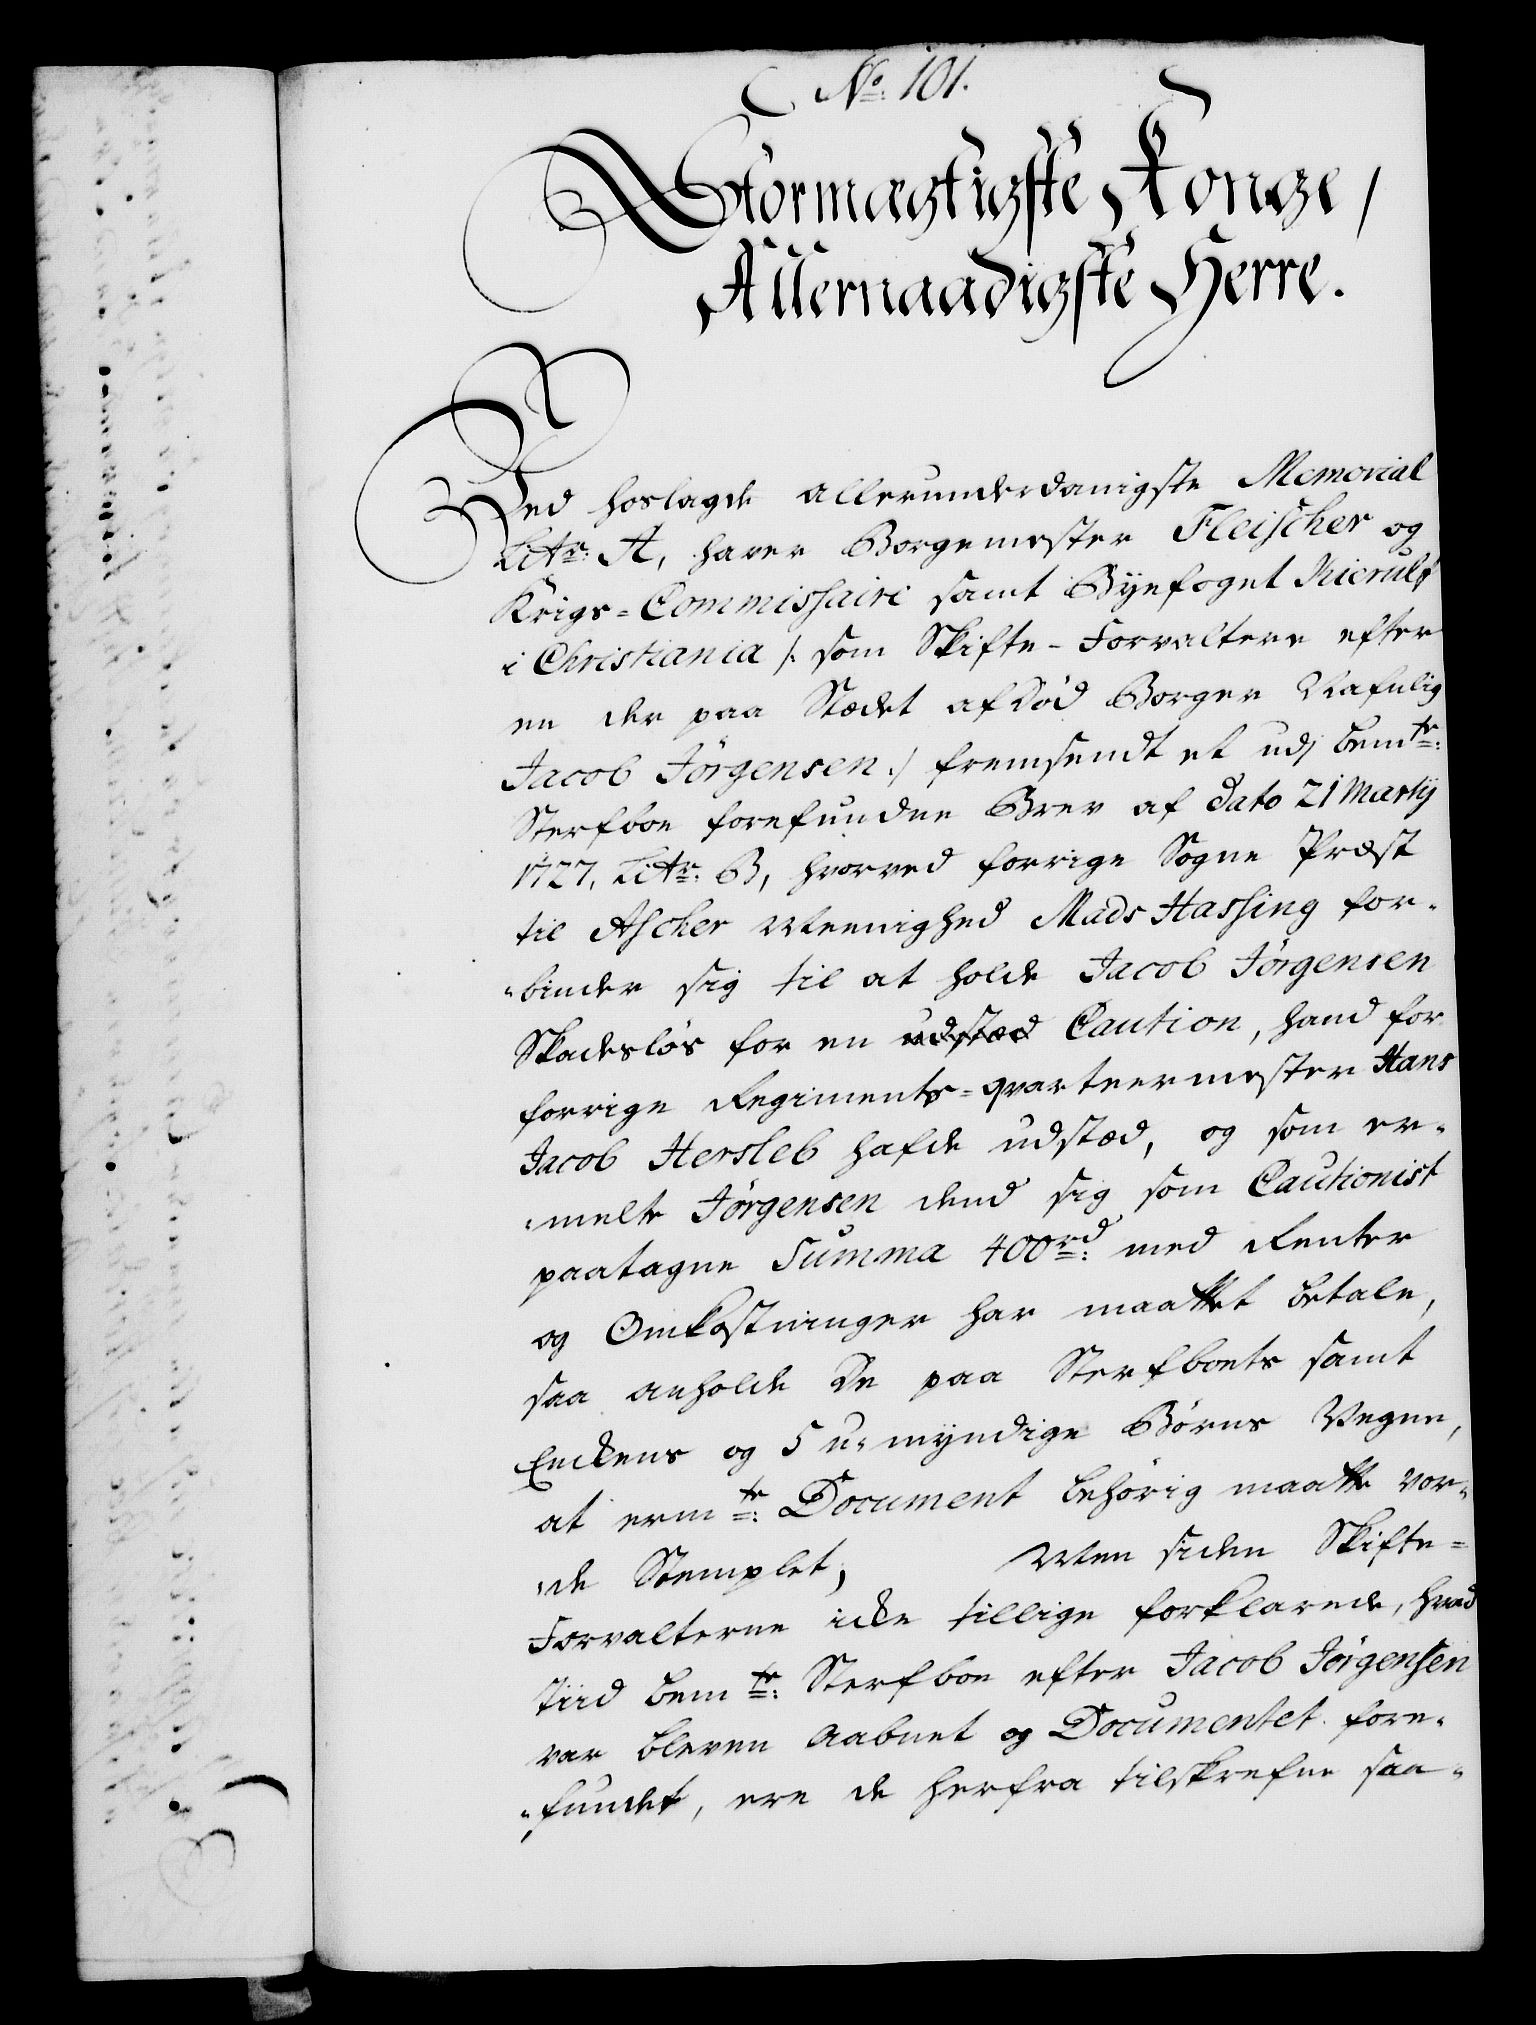 No: 101.
Stormægtigste Konge,
Allernaadigste Herre.
Ved hoslagde allerunderdanigste Memorial
Littr: A, haver Borgemester Fleischer og
Krigs-Commissaire samt Byefoget Kierulf
i Christiania /: som Skifte-Forvaltere efter
en der paa Stædet afdød Borger Nafnlig
Jacob Jørgensen :/ fremsendt et udj bemte:
Sterfboe forefunden Brev af dato 21 Martij
1727, Littr: B, hvorved forrige Sogne Præst
til Ascher Meenighed Mads Hassing for-
binder sig til at holde Jacob Jørgensen
Skadesløs for en udstæd Caution, hand for
forrige Regiments-qvarteermester Hans
Jacob Hersleb hafde udstæd, og som er-
melte Jørgensen dend sig som Cautionist
paatagne Summa 400rd: med Renter
og Omkostninger har maattet betale,
saa anholde De paa Sterfboets samt
Enkens og 5 u-myndige Børns Vegne,
at ermte: Document behørig maatte vor-
de Stemplet; Men siden Skifte-
Forvalterne icke tillige forklarede, hvad
Tiid bemte: Sterfboe efter Jacob Jørgensen
var bleven aabnet og Documentet fore-
funder, ere de herfra tilskrefne saa-